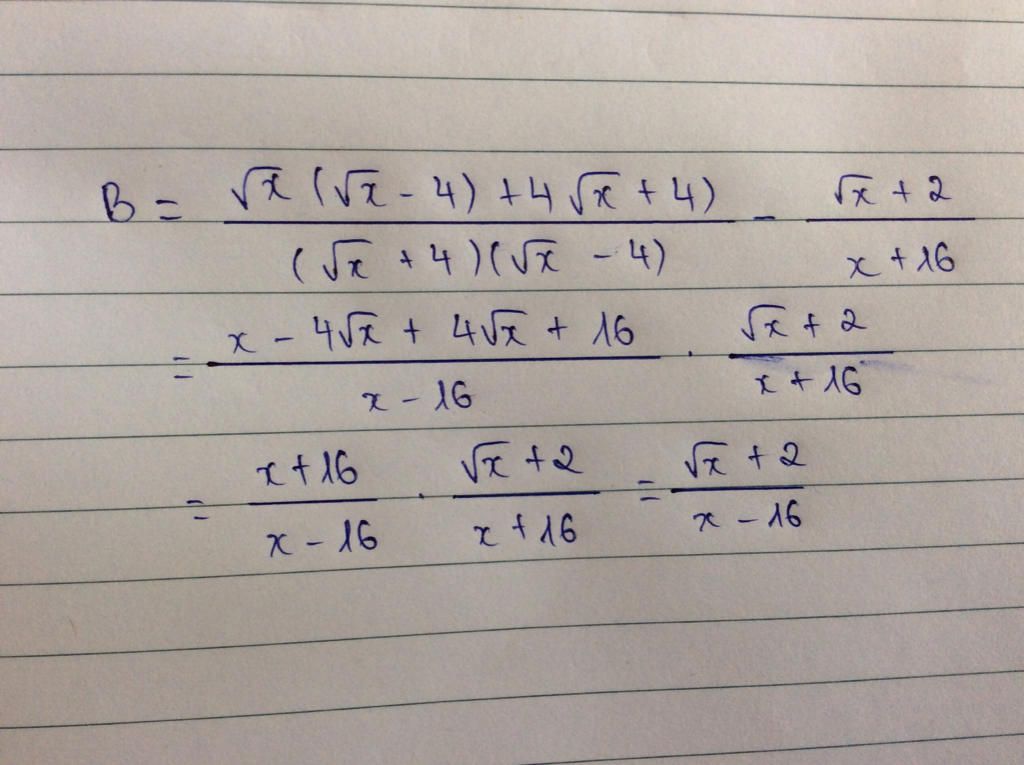 B = \frac{\sqrt{x} (\sqrt{x} - 4) + 4 \sqrt{x} + 4)}{(\sqrt{x} + 4)(\sqrt{x} - 4)} - \frac{\sqrt{x} + 2}{x + 16}
= \frac{x - 4\sqrt{x} + 4\sqrt{x} + 16}{x - 16} . \frac{\sqrt{x} + 2}{x + 16}
= \frac{x + 16}{x - 16} . \frac{\sqrt{x} + 2}{x + 16} = \frac{\sqrt{x} + 2}{x - 16}